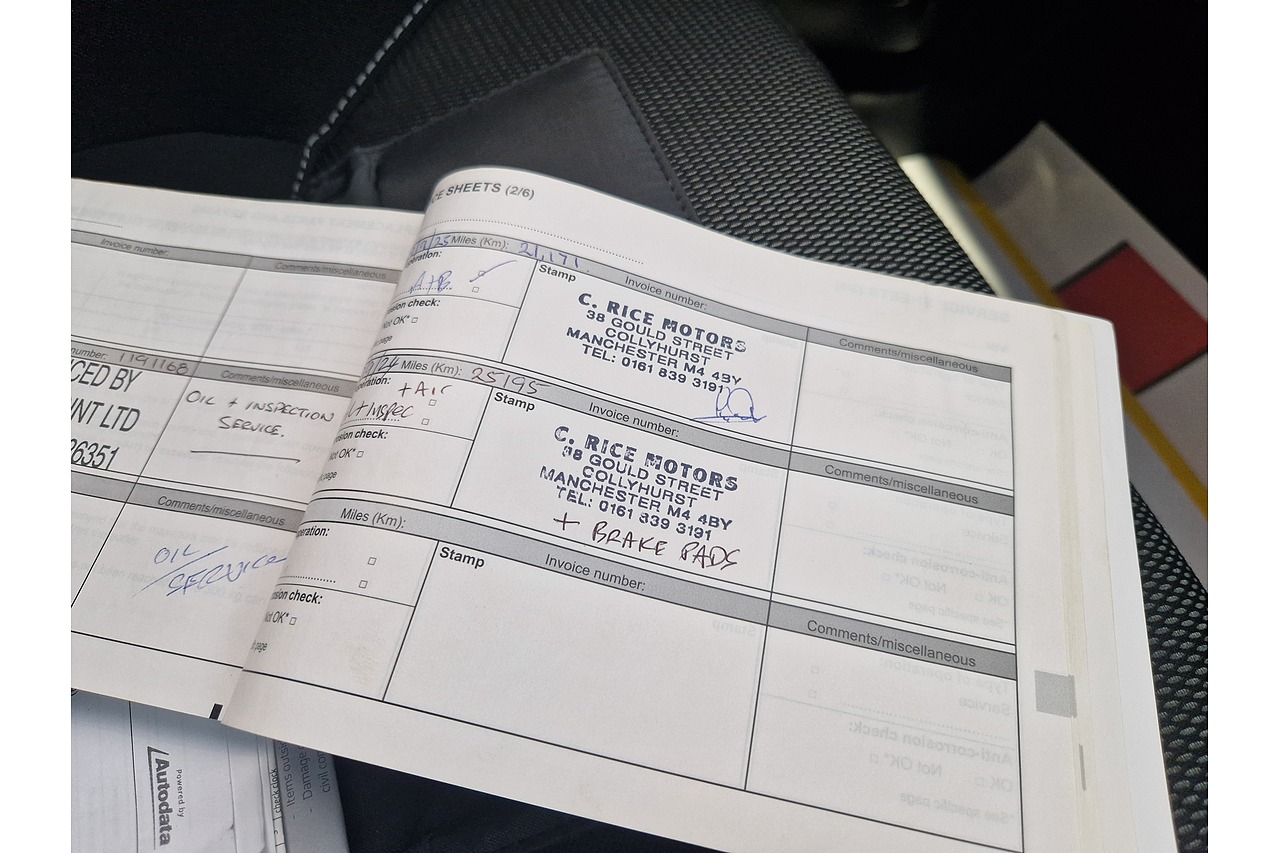 Invoice number:
Comments/miscellaneous
number: 1191168
Comments/miscellaneous
CED BY
NT LTD
6351
OIL + INSPECTION
SERVICE.
Comments/miscellaneous
OIL
SERVICE
CE SHEETS (2/6)
/25 Miles (Km): 21,171
Stamp
Invoice number:
Comments/miscellaneous
peration:
A+B
osion check:
Not OK* □
page
C. RICE MOTORS
38 GOULD STREET
COLLYHURST
MANCHESTER M4 4BY
TEL: 0161 839 3191
/24 Miles (Km): 25195
Stamp
Invoice number:
Comments/miscellaneous
+ Air
+ Inspec
osion check:
Not OK* □
page
C. RICE MOTORS
38 GOULD STREET
COLLYHURST
MANCHESTER M4 4BY
TEL: 0161 839 3191
+ BRAKE PADS
Miles (Km):
Stamp
Invoice number:
Comments/miscellaneous
eration:
osion check:
Not OK* □
page
Powered by
Autodata
check clock
- Items outsi
- Damage
civil co